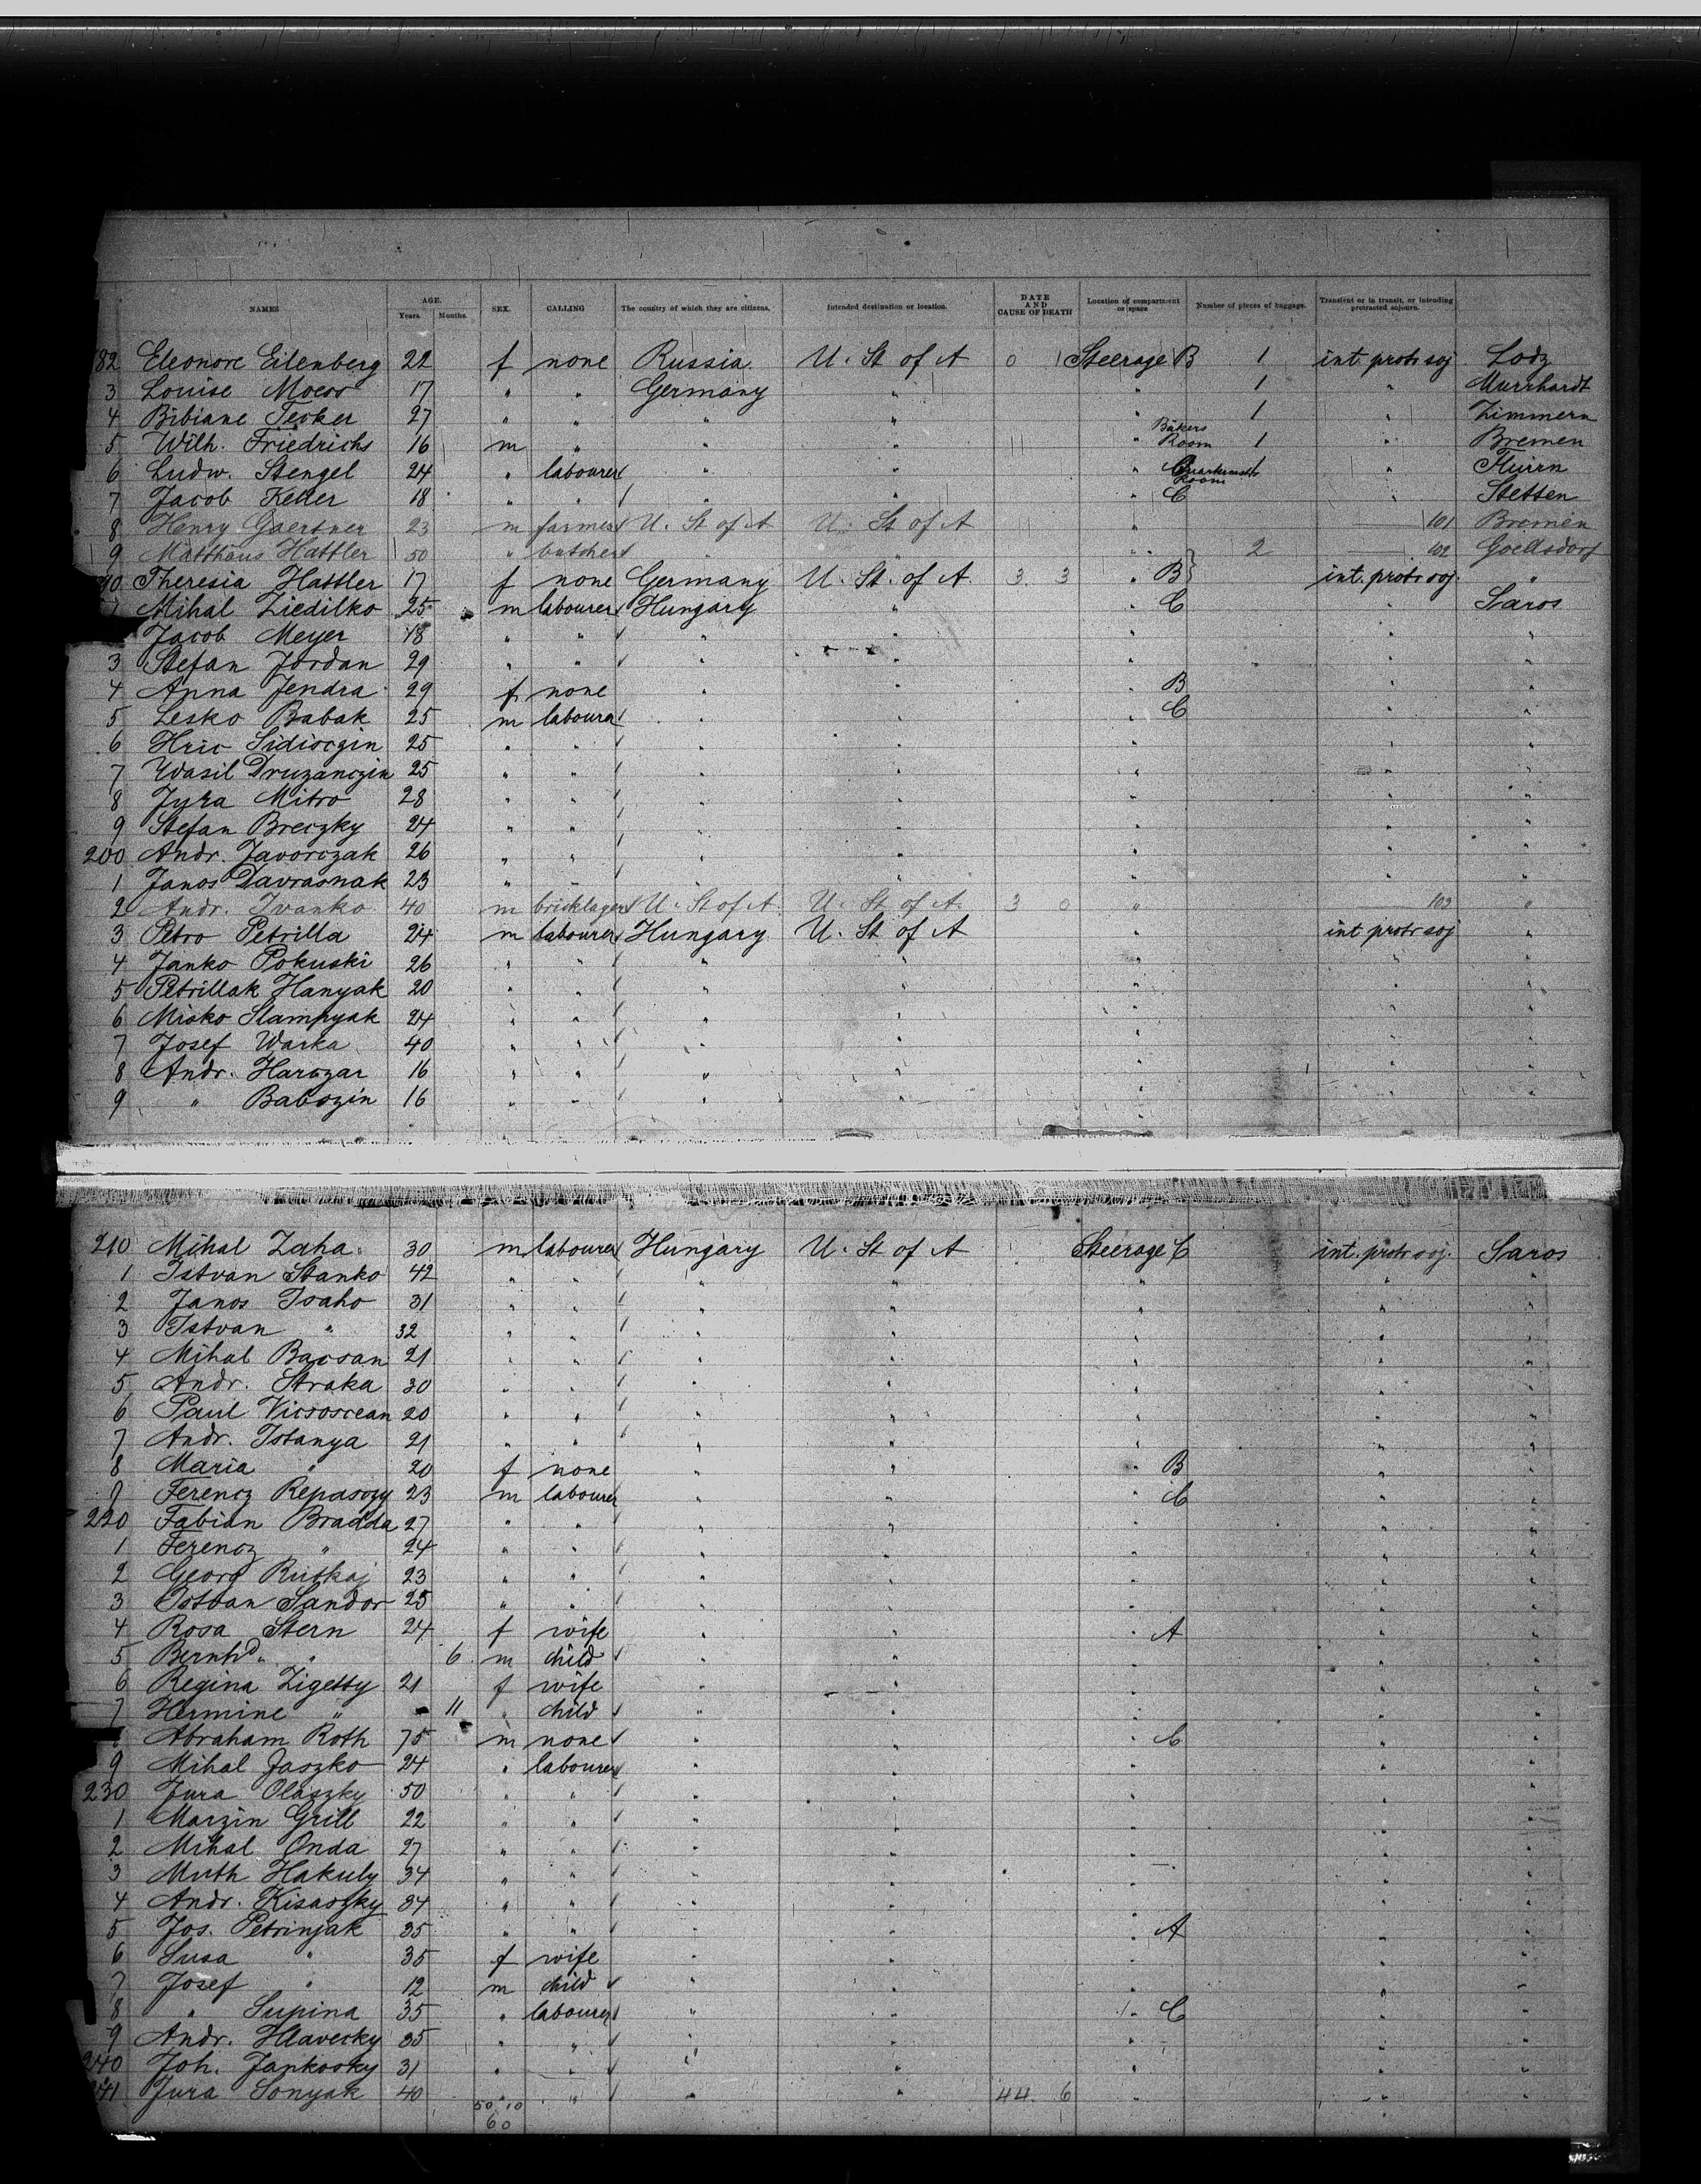 NAMES AGE. Years. Months. SEX. CALLING The country of which they are citizens. Intended destination or location. DATE AND CAUSE OF DEATH Location of compartment or space Number of pieces of baggage. Transient or in transit, or intending protracted sojourn.
182 Eleonore Eilenberg 22 f none Russia. U. St of A 0 1 Steerage B 1 int. protr soj Lodz
3 Louise Moess 17 " " Germany " " 1 " Murrhardt
4 Bibiane Tesker 27 " " " " " 1 " Zimmern
5 Wilh. Friedrichs 16 m " " " " Bäkers Room 1 " Bremen
6 Ludw. Stengel 24 " labourer " " " Room 1 "
7 Jacob Keller 18 " " " " " C " Stetten
8 Henry Gaertner 23 m farmer U. St of A U. St of A " 101 Bremen
9 Matthäus Hattler 50 " butcher " " " 2 102 Goellsdorf
90 Theresia Hattler 17 f none Germany U. St. of A. 3. 3 " B int. protr soj. "
Mihal Ziedilko 25 m labourer Hungary " " C " Saros
Jacob Meyer 18 " " " " " " "
3 Stefan Jordan 29 " " " " " " "
4 Anna Jendra 29 f none " " " B " "
5 Lesko Babak 25 m labourer " " " C " "
6 Hric Sidisczin 25 " " " " " " "
7 Wasil Druzanczin 25 " " " " " " "
8 Jyra Mitro 28 " " " " " " "
9 Stefan Breczky 24 " " " " " " "
200 Andr. Javorczak 26 " " " " " " "
1 Janos Davrasnak 23 " " " " " " "
2 Andr. Ivanko 40 m bricklager U. St of A U. St of A. 3 0 " 103 "
3 Petro Petrilla 24 m labourer Hungary U. St of A " int protr soj "
4 Janko Pokuski 26 " " " " " " "
5 Petrillak Hanyak 20 " " " " " " "
6 Misko Slampyak 24 " " " " " " "
7 Josef Warka 40 " " " " " " "
8 Andr. Harczar 16 " " " " " " "
9 " Babszin 16 " " " " " " "
210 Mihal Zaha 30 m labourer Hungary U. St of A Steerage C int. protr soj. Saros
1 Istvan Stanko 42 " " " " " " "
2 Janos Isaho 31 " " " " " " "
3 Istvan " 32 " " " " " " "
4 Mihal Bacsan 21 " " " " " " "
5 Andr. Straka 30 " " " " " " "
6 Paul 20 " " " " " " "
7 Andr. Istanya 21 " " " " " " "
8 Maria " 20 f none " " " B " "
9 Ferencz Repasozy 23 m labourer " " " C " "
220 Fabian Bradda 27 " " " " " " "
1 Ferencz " 24 " " " " " " "
2 Georg Rutkaj 23 " " " " " " "
3 Ostvan Sandor 25 " " " " " " "
4 Rosa Stern 24 f wife " " " A " "
5 Bernhd. " 6 m child " " " " "
6 Regina Zigetty 21 f wife " " " " "
7 Hermine " 11 " child " " " " "
Abraham Roth 75 m none " " " C " "
9 Mihal Jaszko 24 " labourer " " " " "
230 Jura Olaszky 50 " " " " " " "
1 Marzin Grill 22 " " " " " " "
2 Mihal Onda 27 " " " " " " "
3 Muth Hakuly 34 " " " " " " "
4 Andr. Kisaszky 34 " " " " " " "
5 Jos. Petrinjak 35 " " " " " A " "
6 Susa " 35 f wife " " " " "
7 Josef " 12 m child " " " " "
8 " Supina 35 " labourer " " " C " "
9 Andr. Hlavecky 35 " " " " " " "
240 Joh. Jankosky 31 " " " " " " "
241 Jura Sonyak 40 " " " " 44. 6 " " "
50 10
60